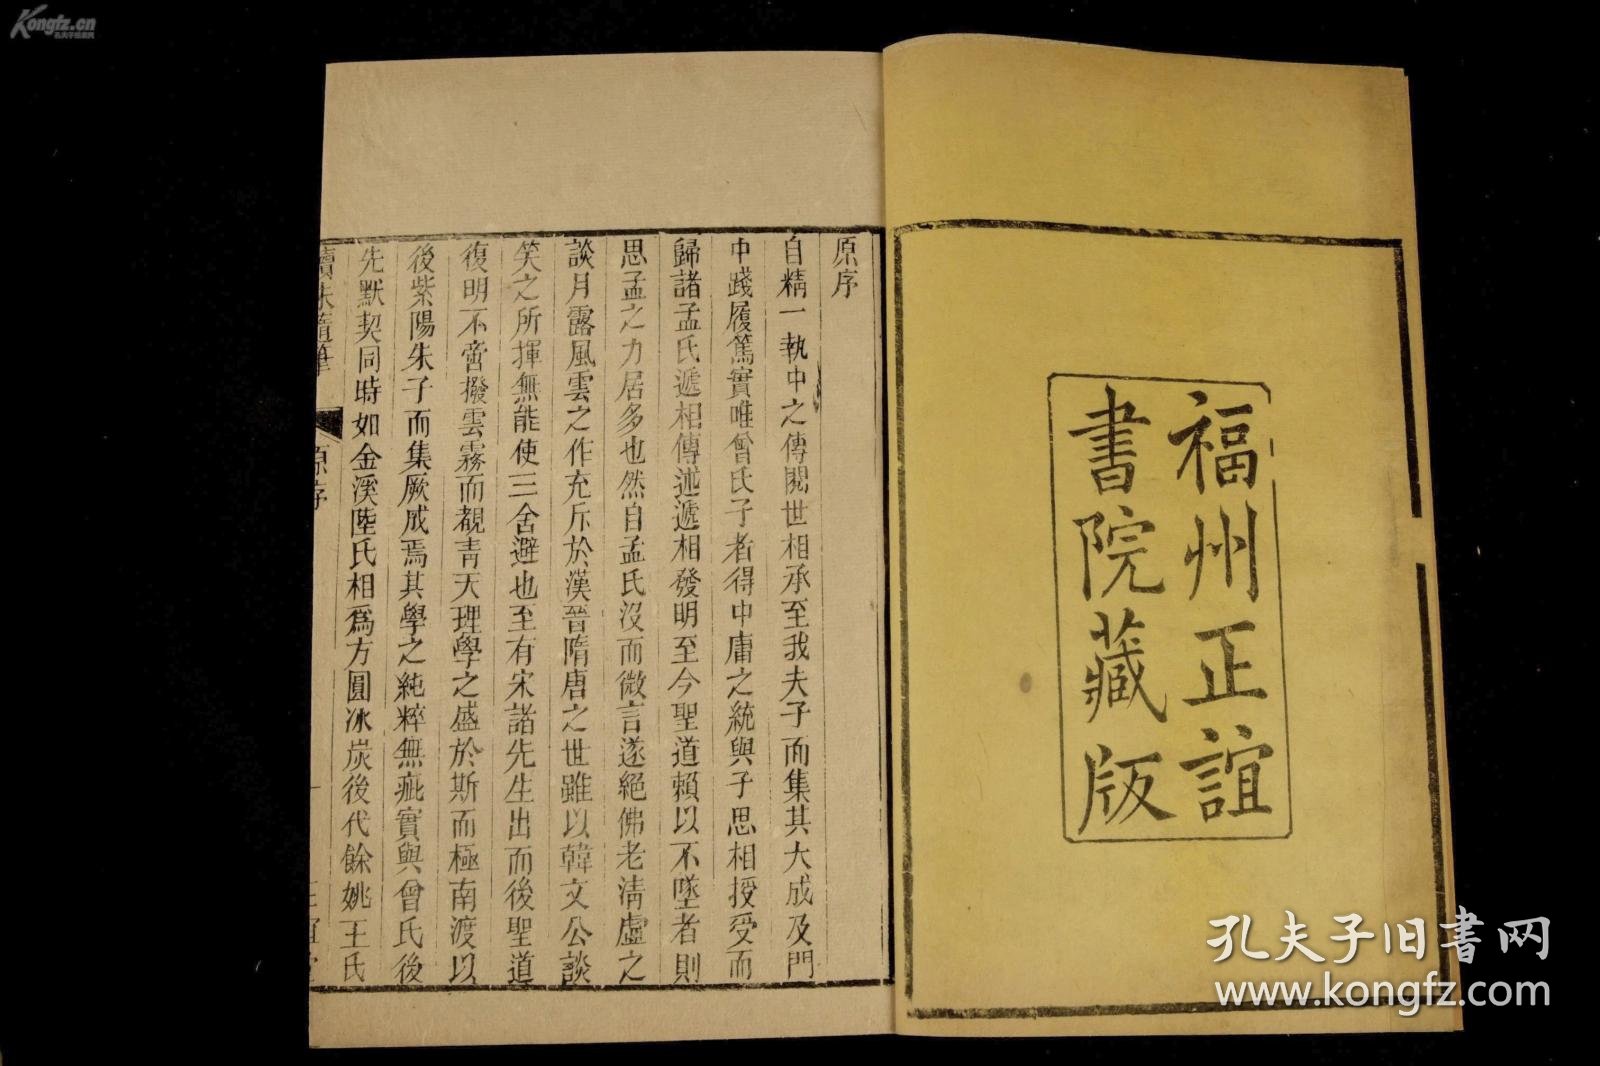 福州正誼
書院藏版
原序
自精一執中之傳閱世相承至我夫子而集其大成及門
中踐履篤實唯曾氏子者得中庸之統與子思相授受而
歸諸孟氏遞相傳述遞相發明至今聖道賴以不墜者則
思孟之力居多也然自孟氏沒而微言遂絕佛老清虛之
談月露風雲之作充斥於漢晉隋唐之世雖以韓文公談
笑之所揮無能使三舍避也至有宋諸先生出而後聖道
復明不啻撥雲霧而覩青天理學之盛於斯而極南渡以
後紫陽朱子而集厥成焉其學之純粹無疵實與曾氏後
先默契同時如金溪陸氏相爲方圓冰炭後代餘姚王氏
讀朱隨筆
原序
一
正誼堂
Kongfz.cn
孔夫子旧书网
www.kongfz.com